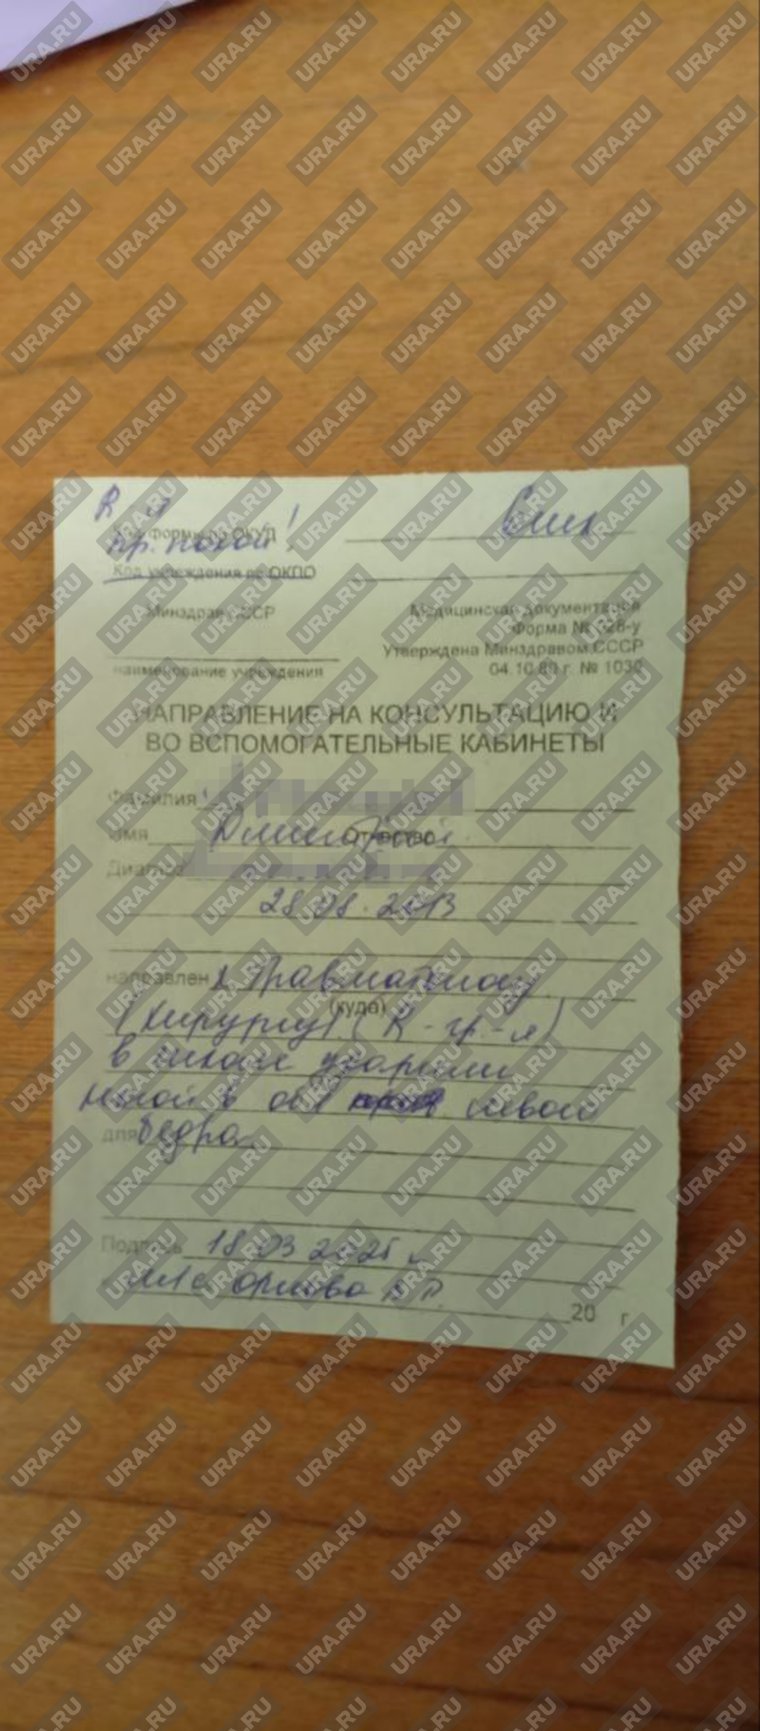 В
пр. покой!
Код формы по ОКУД
Код учреждения по ОКПО
Минздрав СССР
наименование учреждения
Медицинская документация
Форма № 028-у
Утверждена Минздравом СССР
04.10.80 г. № 1030
НАПРАВЛЕНИЕ НА КОНСУЛЬТАЦИЮ И
ВО ВСПОМОГАТЕЛЬНЫЕ КАБИНЕТЫ
Фамилия
Имя Дмитрий Отчество
Диагноз
28.08.2013
направлен к травматологу
(куда)
(хирургу) (R-гр-я)
в школе ударили
ногой в обл левого
для бедра
Подпись 18.03 2025 г
м/с Орлова
20 г.
URA.RU